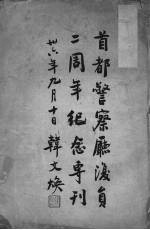 首都警察廳復員
二周年紀念專刊
卅六年九月十日 韓文煥